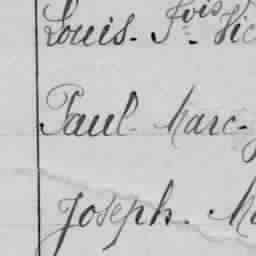 Louis. Fois Vic
Paul Marc-
Joseph. Ma